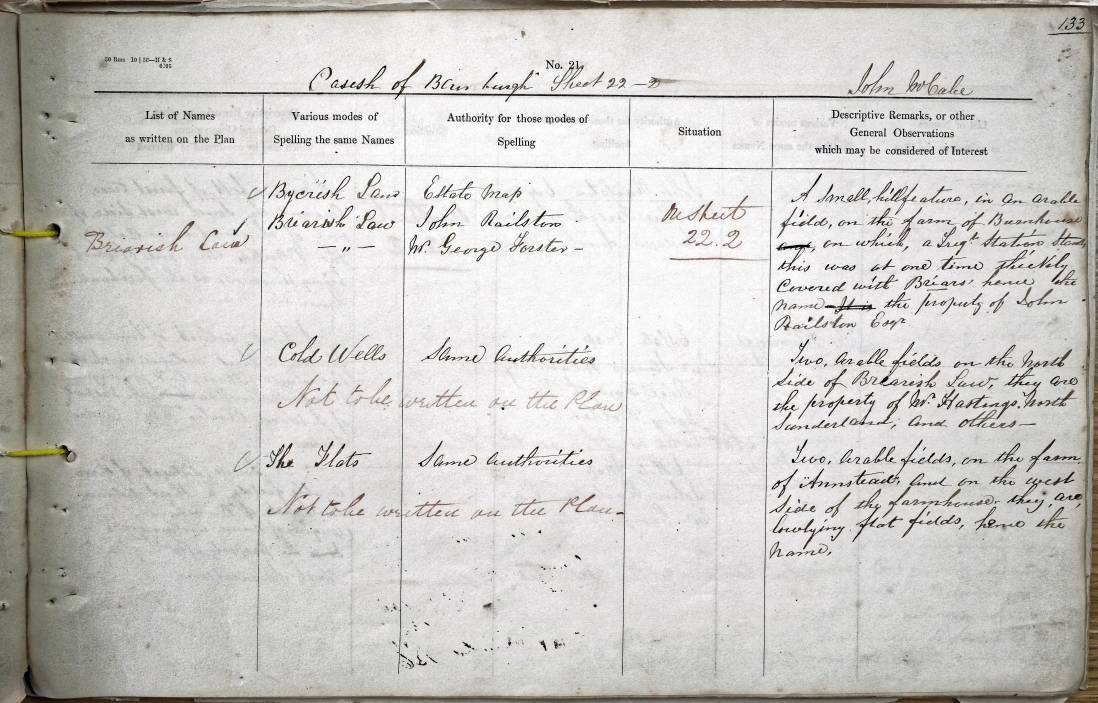 133
No. 21
Parish of Bamburgh Sheet 22-2
John McCabe
List of Names
as written on the Plan
Various modes of
Spelling the same Names
Authority for those modes of
Spelling
Situation
Descriptive Remarks, or other
General Observations
which may be considered of Interest
Briarish Law
Bycrish Law
Briarish Law
— „ —
Estate Map
John Railston
Mr. George Forster -
On Sheet
22.2
A small, hillfeature, in an arable
field, on the farm of Burnhouse
on which, a Trigl. Station Stands
this was at one time thickly
Covered with Briars' hence the
name It is the property of John
Railston Esqr
Cold Wells
Same Authorities
Not to be written on the Plan
Two, arable fields on the North
side of Brearish Law, they are
the property of Mr. Hastings. North
Sunderland, and others —
The Flats
Same Authorities
Not to be written on the Plan.
Two, arable fields, on the farm
of Annstead, and on the west
side of the farmhouse, they, are,
lowlying flat fields, hence the
Name.